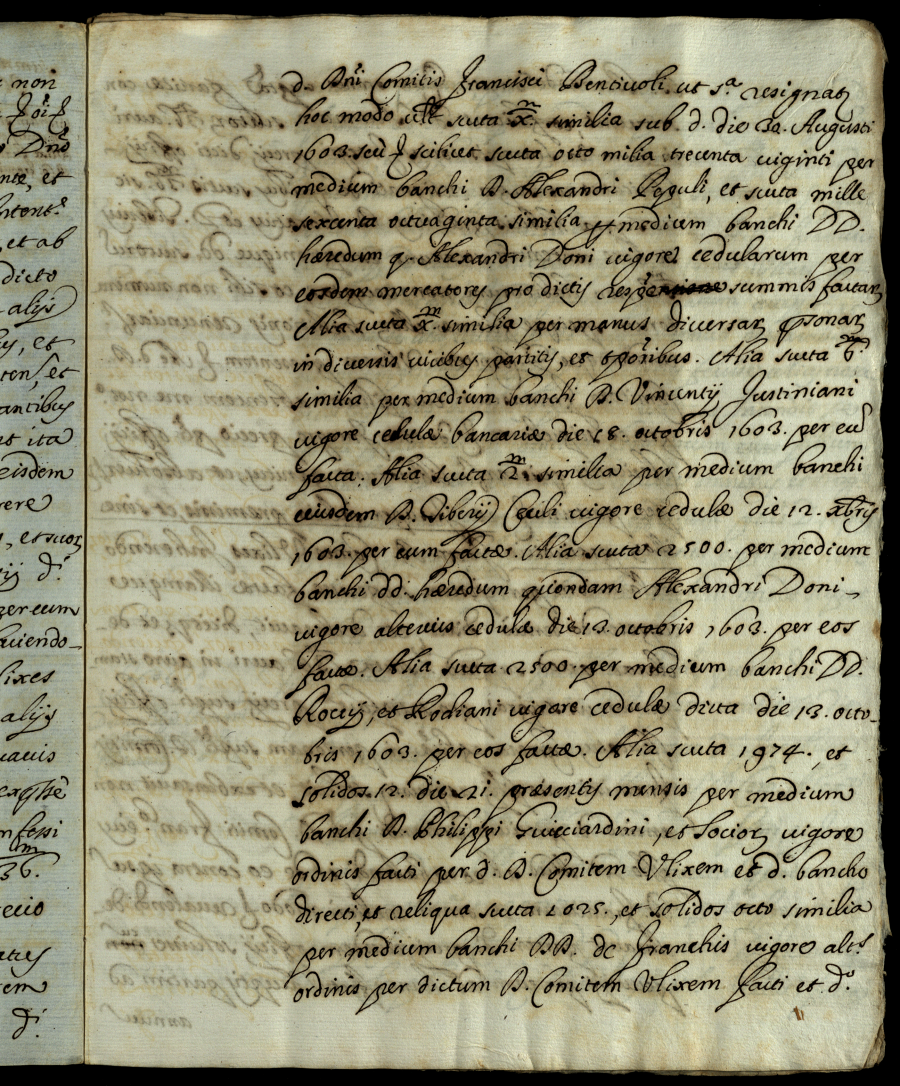 non
Dno
nte, et
et ab
dicto
alijs
et
et
antibus
ita
eisdem
rere
, et suor
d.
per eum
aciendo
lixes
alijs
uauis
nfessi
36.
ecio
rem
d.
d. Dni Comitis Francisci Bentiuoli, ut sa. resignat
hoc modo scuta x m similia sub. d. die 30. Augusti
1603. seu scilicet scuta octo milia trecenta uiginti per
medium banchi D. Alexandri Pepuli, et scuta mille
sexcenta octuaginta similia p medium banchi DD.
hæredum q. Alexandri Doni uigore cedularum per
eosdem mercatores pro dictis summis factar
Alia scuta x m similia per manus diuersar psonar
in diuersis uicibus partitis, et tporibus. Alia scuta 6 m
similia per medium banchi D. Vincentij Justiniani
uigore cedulæ bancariæ die 18. octobris 1603. per eu
facta. Alia scuta 2 m similia per medium banchi
eiusdem D. Tiberij Ceuli uigore cedulæ die 12. xbris
1603. per eum factæ. Alia scuta 2500. per medium
banchi dd. hæredum quondam Alexandri Doni
uigore alterius cedulæ die 13. octobris 1603. per eos
factæ. Alia scuta 2500. per medium banchi DD.
Rocij, et Rodiani uigore cedulæ dicta die 13. octo-
bris 1603. per eos factæ. Alia scuta 1974. et
solidos 12. die 21. præsentis mensis per medium
banchi D. Philippi Guicciardini, et Socior uigore
ordinis facti per d. D. Comitem Vlixem et d. bancho
directi, et reliqua scuta 1025., et solidos octo similia
per medium banchi DD. de Franchis uigore alt.s
ordinis per dictum D. Comitem Vlixem facti et do.